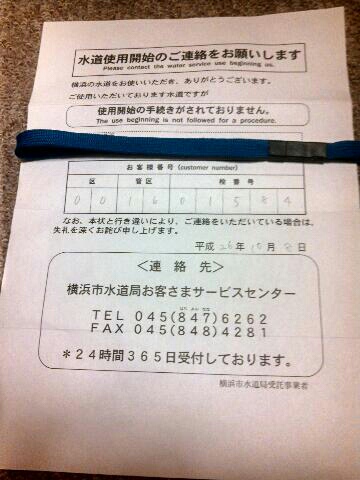 水道使用開始のご連絡をお願いします
Please contact the water service use beginning us.
横浜の水道をお使いいただき、ありがとうございます。
ご使用いただいております水道ですが
使用開始の手続きがされておりません。
The use beginning is not followed for a procedure.
お客様番号(customer number)
区 管区 栓番号
0 0 1 6 0 1 5 8 4
なお、本状と行き違いにより、ご連絡をいただいている場合は、
失礼を深くお詫び申し上げます。
平成 26年 10月 8日
<連絡先>
横浜市水道局お客さまサービスセンター
TEL 045(847)6262
FAX 045(848)4281
*24時間365日受付しております。
横浜市水道局受託事業者